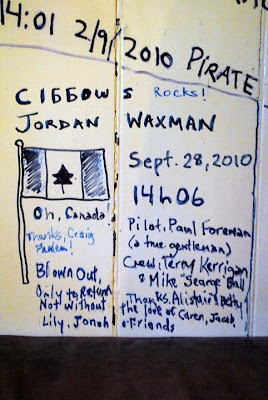 14:01 2/9/2010 PIRATE
CIBBOWS Rocks!
JORDAN WAXMAN
Oh, Canada!
Thanks, Craig
Blown Out,
Only to Return
Not Without
Lily, Jonah
Sept. 28, 2010
14h06
Pilot, Paul Foreman
(a true gentleman)
Crew: Terry Kerrigan
& Mike "Searge" Ball
Thanks, Alistair, Betty
the love of Caren, Jacob,
& Friends